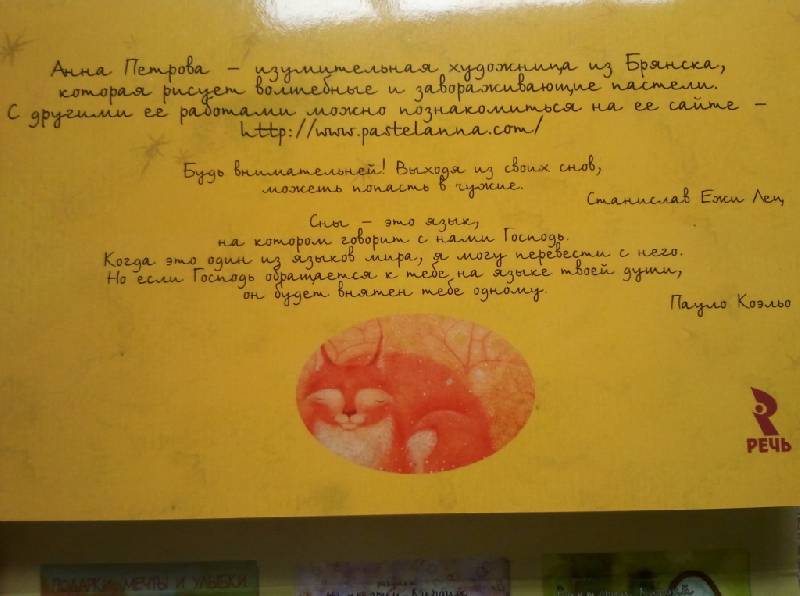 Анна Петрова – изумительная художница из Брянска,
которая рисует волшебные и завораживающие пастели.
С другими ее работами можно познакомиться на ее сайте –
http://www.pastelanna.com/
Будь внимательней! Выходя из своих снов,
можешь попасть в чужие.
Станислав Ежи Лец
Сны – это язык,
на котором говорит с нами Господь.
Когда это один из языков мира, я могу перевести с него.
Но если Господь обращается к тебе на языке твоей души,
он будет внятен тебе одному.
Пауло Коэльо
РЕЧЬ
ПОДАРКИ, МЕЧТЫ И УЛЫБКИ